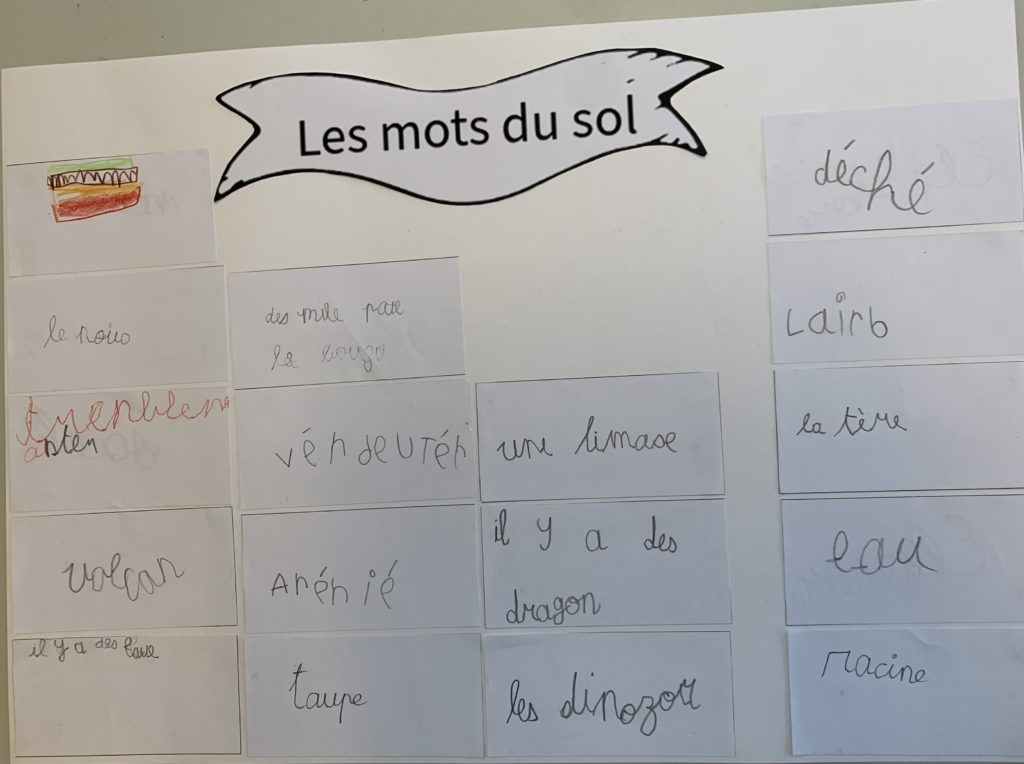 Les mots du sol
le noio
tremblem
anten
volcan
il y a des lave
des mile pate
la rouge
vén deutén
Arénié
taupe
une limase
il y a des
dragon
les dinozor
déché
Lairb
la tère
eau
racine